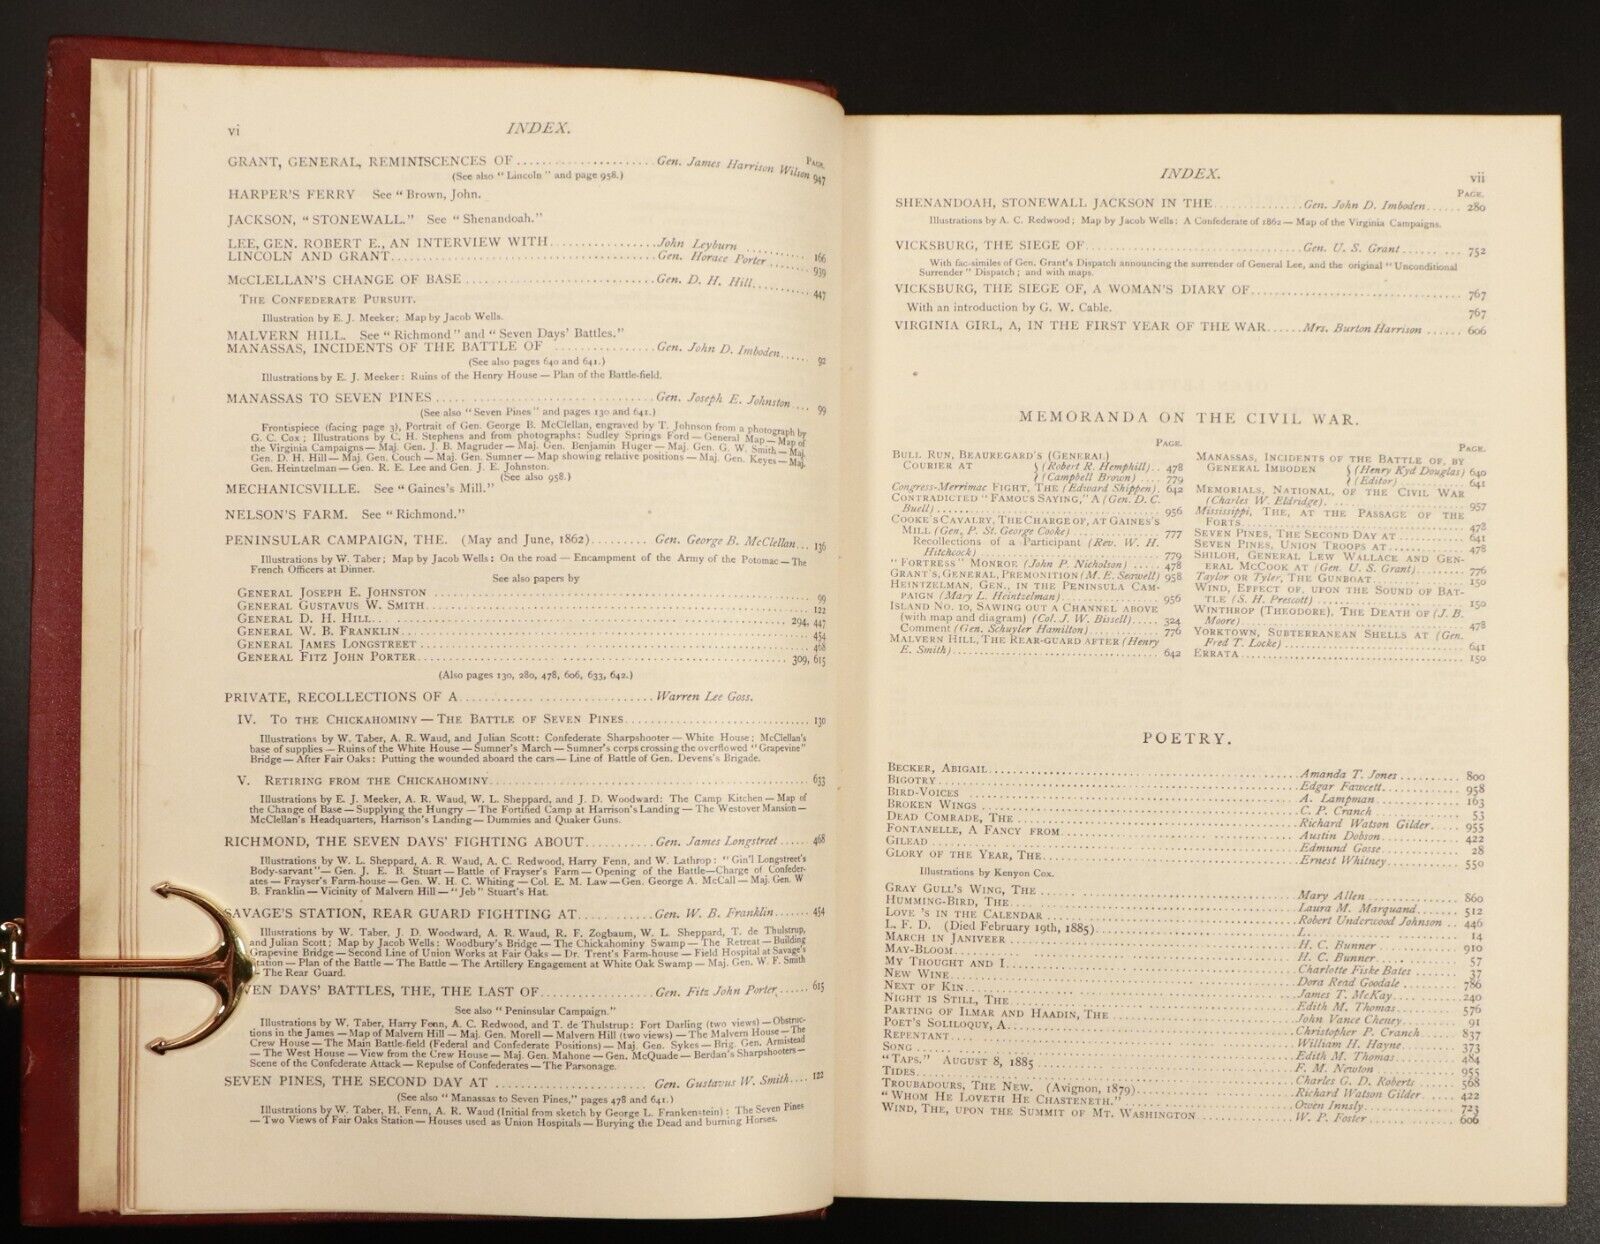 vi INDEX.
PAGE.
GRANT, GENERAL, REMINISCENCES OF ..................... Gen. James Harrison Wilson 947
(See also "Lincoln" and page 958.)
HARPER'S FERRY See "Brown, John.
JACKSON, "STONEWALL." See "Shenandoah."
LEE, GEN. ROBERT E., AN INTERVIEW WITH ................ John Leyburn ........ 166
LINCOLN AND GRANT ..................... Gen. Horace Porter ....... 939
McCLELLAN'S CHANGE OF BASE ..................... Gen. D. H. Hill ......... 447
THE CONFEDERATE PURSUIT.
Illustration by E. J. Meeker; Map by Jacob Wells.
MALVERN HILL. See "Richmond" and "Seven Days' Battles."
MANASSAS, INCIDENTS OF THE BATTLE OF ................. Gen. John D. Imboden ..... 92
(See also pages 640 and 641.)
Illustrations by E. J. Meeker: Ruins of the Henry House — Plan of the Battle-field.
MANASSAS TO SEVEN PINES ..................... Gen. Joseph E. Johnston ... 99
(See also "Seven Pines" and pages 130 and 641.)
Frontispiece (facing page 3), Portrait of Gen. George B. McClellan, engraved by T. Johnson from a photograph by
G. C. Cox; Illustrations by C. H. Stephens and from photographs: Sudley Springs Ford — General Map — Map of
the Virginia Campaigns — Maj. Gen. J. B. Magruder — Maj. Gen. Benjamin Huger — Maj. Gen. G. W. Smith — Maj.
Gen. D. H. Hill — Maj. Gen. Couch — Maj. Gen. Sumner — Map showing relative positions — Maj. Gen. Keyes — Maj.
Gen. Heintzelman — Gen. R. E. Lee and Gen. J. E. Johnston.
(See also 958.)
MECHANICSVILLE. See "Gaines's Mill."
NELSON'S FARM. See "Richmond."
PENINSULAR CAMPAIGN, THE. (May and June, 1862) ......... Gen. George B. McClellan ... 136
Illustrations by W. Taber; Map by Jacob Wells: On the road — Encampment of the Army of the Potomac — The
French Officers at Dinner.
See also papers by
GENERAL JOSEPH E. JOHNSTON ..................... 99
GENERAL GUSTAVUS W. SMITH ..................... 122
GENERAL D. H. HILL ..................... 294, 447
GENERAL W. B. FRANKLIN ..................... 454
GENERAL JAMES LONGSTREET ..................... 468
GENERAL FITZ JOHN PORTER ..................... 309, 615
(Also pages 130, 280, 478, 606, 633, 642.)
PRIVATE, RECOLLECTIONS OF A ..................... Warren Lee Goss.
IV. TO THE CHICKAHOMINY — THE BATTLE OF SEVEN PINES ..................... 130
Illustrations by W. Taber, A. R. Waud, and Julian Scott: Confederate Sharpshooter — White House: McClellan's
base of supplies — Ruins of the White House — Sumner's March — Sumner's corps crossing the overflowed "Grapevine"
Bridge — After Fair Oaks: Putting the wounded aboard the cars — Line of Battle of Gen. Devens's Brigade.
V. RETIRING FROM THE CHICKAHOMINY ..................... 633
Illustrations by E. J. Meeker, A. R. Waud, W. L. Sheppard, and J. D. Woodward: The Camp Kitchen — Map of
the Change of Base — Supplying the Hungry — The Fortified Camp at Harrison's Landing — The Westover Mansion —
McClellan's Headquarters, Harrison's Landing — Dummies and Quaker Guns.
RICHMOND, THE SEVEN DAYS' FIGHTING ABOUT .......... Gen. James Longstreet ..... 468
Illustrations by W. L. Sheppard, A. R. Waud, A. C. Redwood, Harry Fenn, and W. Lathrop: "Gin'l Longstreet's
Body-sarvant" — Gen. J. E. B. Stuart — Battle of Frayser's Farm — Opening of the Battle — Charge of Confeder-
ates — Frayser's Farm-house — Gen. W. H. C. Whiting — Col. E. M. Law — Gen. George A. McCall — Maj. Gen. W
B. Franklin — Vicinity of Malvern Hill — "Jeb" Stuart's Hat.
SAVAGE'S STATION, REAR GUARD FIGHTING AT ........... Gen. W. B. Franklin ....... 454
Illustrations by W. Taber, J. D. Woodward, A. R. Waud, R. F. Zogbaum, W. L. Sheppard, T. de Thulstrup,
and Julian Scott; Map by Jacob Wells: Woodbury's Bridge — The Chickahominy Swamp — The Retreat — Building
Grapevine Bridge — Second Line of Union Works at Fair Oaks — Dr. Trent's Farm-house — Field Hospital at Savage's
tation — Plan of the Battle — The Battle — The Artillery Engagement at White Oak Swamp — Maj. Gen. W. F. Smith
— The Rear Guard.
VEN DAYS' BATTLES, THE, THE LAST OF ................ Gen. Fitz John Porter ...... 615
See also "Peninsular Campaign."
Illustrations by W. Taber, Harry Fenn, A. C. Redwood, and T. de Thulstrup: Fort Darling (two views) — Obstruc-
tions in the James — Map of Malvern Hill — Maj. Gen. Morell — Malvern Hill (two views) — The Malvern House — The
Crew House — The Main Battle-field (Federal and Confederate Positions) — Maj. Gen. Sykes — Brig. Gen. Armistead
— The West House — View from the Crew House — Maj. Gen. Mahone — Gen. McQuade — Berdan's Sharpshooters —
Scene of the Confederate Attack — Repulse of Confederates — The Parsonage.
SEVEN PINES, THE SECOND DAY AT ..................... Gen. Gustavus W. Smith .... 122
(See also "Manassas to Seven Pines," pages 478 and 641.)
Illustrations by W. Taber, H. Fenn, A. R. Waud (Initial from sketch by George L. Frankenstein): The Seven Pines
— Two Views of Fair Oaks Station — Houses used as Union Hospitals — Burying the Dead and burning Horses.
INDEX. vii
PAGE.
SHENANDOAH, STONEWALL JACKSON IN THE ............. Gen. John D. Imboden ...... 280
Illustrations by A. C. Redwood; Map by Jacob Wells: A Confederate of 1862 — Map of the Virginia Campaigns.
VICKSBURG, THE SIEGE OF ..................... Gen. U. S. Grant ........ 752
With fac-similes of Gen. Grant's Dispatch announcing the surrender of General Lee, and the original "Unconditional
Surrender" Dispatch; and with maps.
VICKSBURG, THE SIEGE OF, A WOMAN'S DIARY OF ..................... 767
With an introduction by G. W. Cable. 767
VIRGINIA GIRL, A, IN THE FIRST YEAR OF THE WAR ...... Mrs. Burton Harrison ...... 606
MEMORANDA ON THE CIVIL WAR.
PAGE.
BULL RUN, BEAUREGARD'S (GENERAL)
COURIER AT { (Robert R. Hemphill) .. 478
{ (Campbell Brown) .... 779
Congress-Merrimac FIGHT, THE (Edward Shippen). 642
CONTRADICTED "FAMOUS SAYING," A (Gen. D. C.
Buell) ..................... 956
COOKE'S CAVALRY, THE CHARGE OF, AT GAINES'S
MILL (Gen. P. St. George Cooke) ............ 777
Recollections of a Participant (Rev. W. H.
Hitchcock) ..................... 779
"FORTRESS" MONROE (John P. Nicholson) ..... 478
GRANT'S, GENERAL, PREMONITION (M. E. Seawell) 958
HEINTZELMAN, GEN., IN THE PENINSULA CAM-
PAIGN (Mary L. Heintzelman) ............... 956
ISLAND NO. 10, SAWING OUT A CHANNEL ABOVE
(with map and diagram) (Col. J. W. Bissell) ..... 324
Comment (Gen. Schuyler Hamilton) ............ 776
MALVERN HILL, THE REAR-GUARD AFTER (Henry
E. Smith) ..................... 642
PAGE.
MANASSAS, INCIDENTS OF THE BATTLE OF, BY
GENERAL IMBODEN { (Henry Kyd Douglas) 640
{ (Editor) ............ 641
MEMORIALS, NATIONAL, OF THE CIVIL WAR
(Charles W. Eldridge) ..................... 957
Mississippi, THE, AT THE PASSAGE OF THE
FORTS ..................... 478
SEVEN PINES, THE SECOND DAY AT ............ 641
SEVEN PINES, UNION TROOPS AT .............. 478
SHILOH, GENERAL LEW WALLACE AND GEN-
ERAL MCCOOK AT (Gen. U. S. Grant) ........ 776
Taylor OR Tyler, THE GUNBOAT ............... 150
WIND, EFFECT OF, UPON THE SOUND OF BAT-
TLE (S. H. Prescott) ..................... 150
WINTHROP (THEODORE), THE DEATH OF (J. B.
Moore) ..................... 478
YORKTOWN, SUBTERRANEAN SHELLS AT (Gen.
Fred T. Locke) ..................... 641
ERRATA ..................... 150
POETRY.
BECKER, ABIGAIL ..................... Amanda T. Jones .......... 800
BIGOTRY ..................... Edgar Fawcett ............ 958
BIRD-VOICES ..................... A. Lampman .............. 163
BROKEN WINGS ..................... C. P. Cranch .............. 53
DEAD COMRADE, THE ..................... Richard Watson Gilder ..... 955
FONTANELLE, A FANCY FROM ..................... Austin Dobson ............ 422
GILEAD ..................... Edmund Gosse ............ 28
GLORY OF THE YEAR, THE ..................... Ernest Whitney ........... 550
Illustrations by Kenyon Cox.
GRAY GULL'S WING, THE ..................... Mary Allen ............... 860
HUMMING-BIRD, THE ..................... Laura M. Marquand ....... 512
LOVE 'S IN THE CALENDAR ..................... Robert Underwood Johnson .. 446
L. F. D. (Died February 19th, 1885) ..................... L. ..................... 14
MARCH IN JANIVEER ..................... H. C. Bunner ............ 910
MAY-BLOOM ..................... H. C. Bunner ............ 57
MY THOUGHT AND I ..................... Charlotte Fiske Bates ....... 37
NEW WINE ..................... Dora Read Goodale ........ 786
NEXT OF KIN ..................... James T. McKay .......... 240
NIGHT IS STILL, THE ..................... Edith M. Thomas .......... 576
PARTING OF ILMAR AND HAADIN, THE ..................... John Vance Cheney ........ 91
POET'S SOLILOQUY, A ..................... Christopher P. Cranch ...... 837
REPENTANT ..................... William H. Hayne ......... 373
SONG ..................... Edith M. Thomas .......... 484
"TAPS." AUGUST 8, 1885 ..................... F. M. Newton ............ 955
TIDES ..................... Charles G. D. Roberts ...... 568
TROUBADOURS, THE NEW. (Avignon, 1879) ..................... Richard Watson Gilder ..... 422
"WHOM HE LOVETH HE CHASTENETH." ..................... Owen Innsly ............. 723
WIND, THE, UPON THE SUMMIT OF MT. WASHINGTON ............... W. P. Foster ............. 606